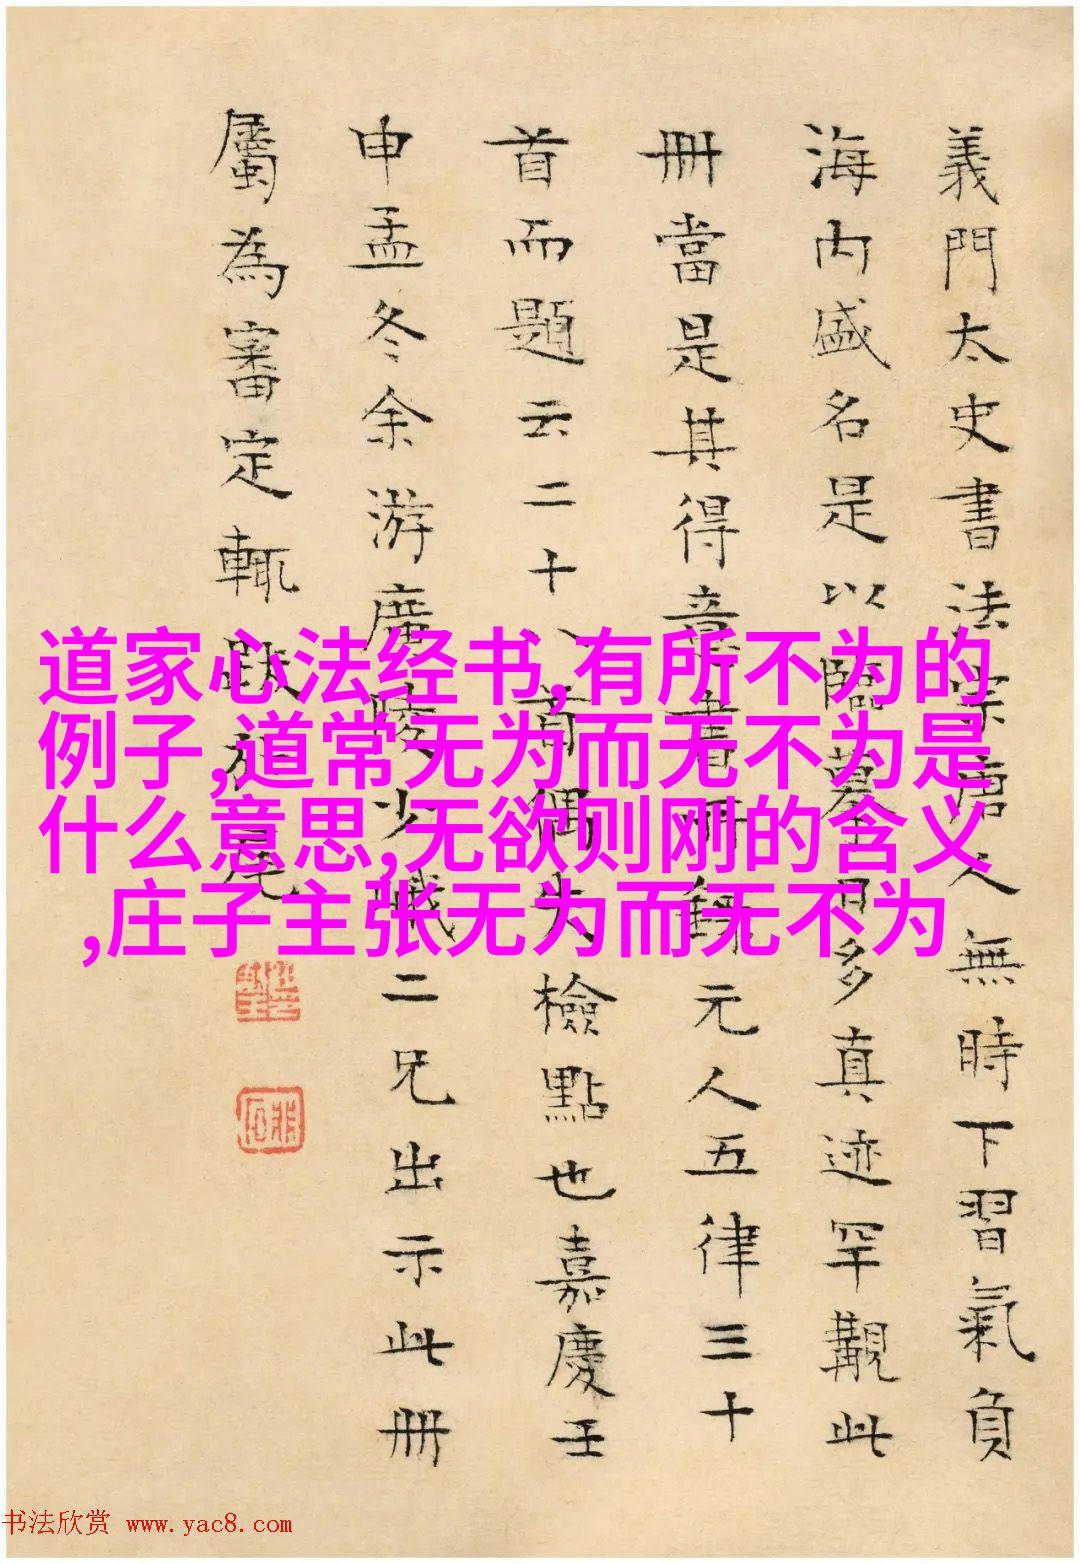 義門太史書法宗唐人無時下習氣負
海内盛名是以臨摹日多真迹罕覯此
冊當是其得意書錄元人五律三十
首而題云二十八首偶失檢點也嘉慶壬
申孟冬余游廣陵少二兄出示此冊
屬為審定輒跋於尾
道家心法经书,有所不为的
例子,道常无为而无不为是
什么意思,无欲则刚的含义
,庄子主张无为而无不为
书法欣赏 www.yac8.com